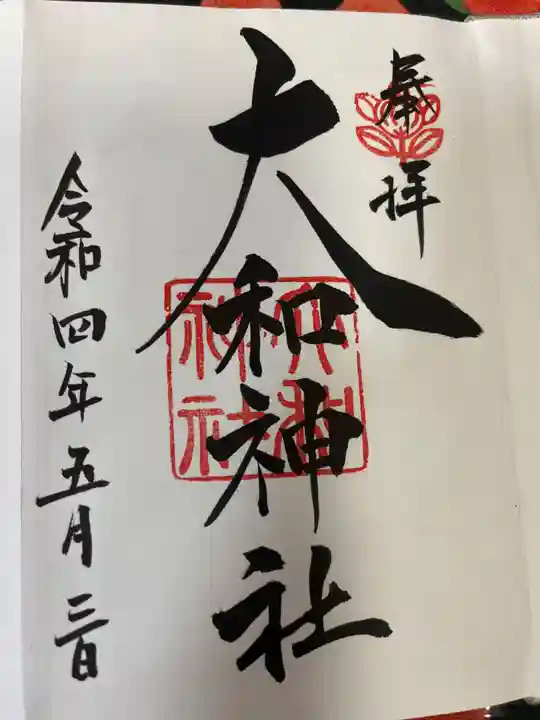 奉拝
大和神社
大和神社
令和四年五月三日